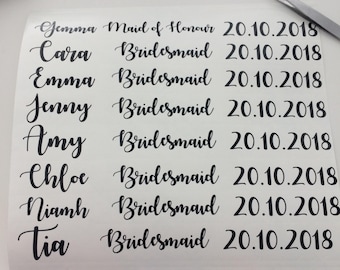 Gemma Maid of Honour 20.10.2018
Cara Bridesmaid 20.10.2018
Emma Bridesmaid 20.10.2018
Jenny Bridesmaid 20.10.2018
Amy Bridesmaid 20.10.2018
Chloe Bridesmaid 20.10.2018
Niamh Bridesmaid 20.10.2018
Tia Bridesmaid 20.10.2018